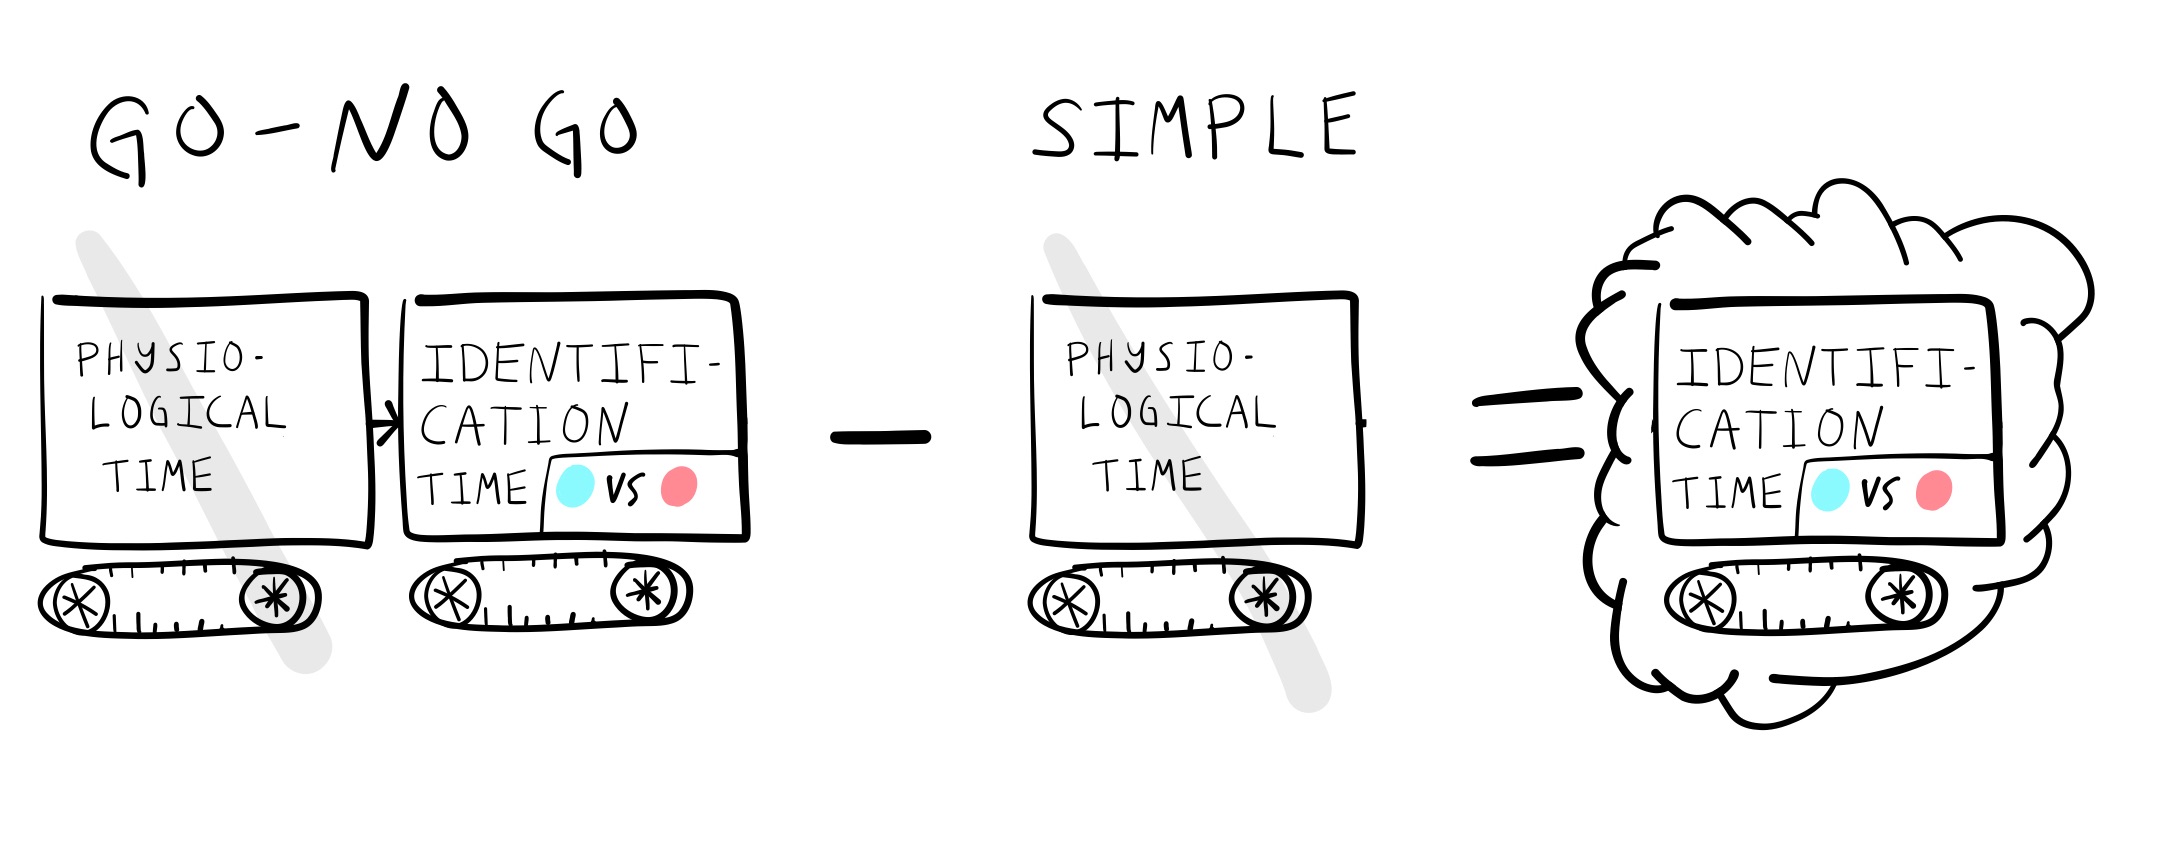 GO-NO GO
SIMPLE
PHYSIO-
LOGICAL
TIME
IDENTIFI-
CATION
TIME
VS
PHYSIO-
LOGICAL
TIME
IDENTIFI-
CATION
TIME
VS